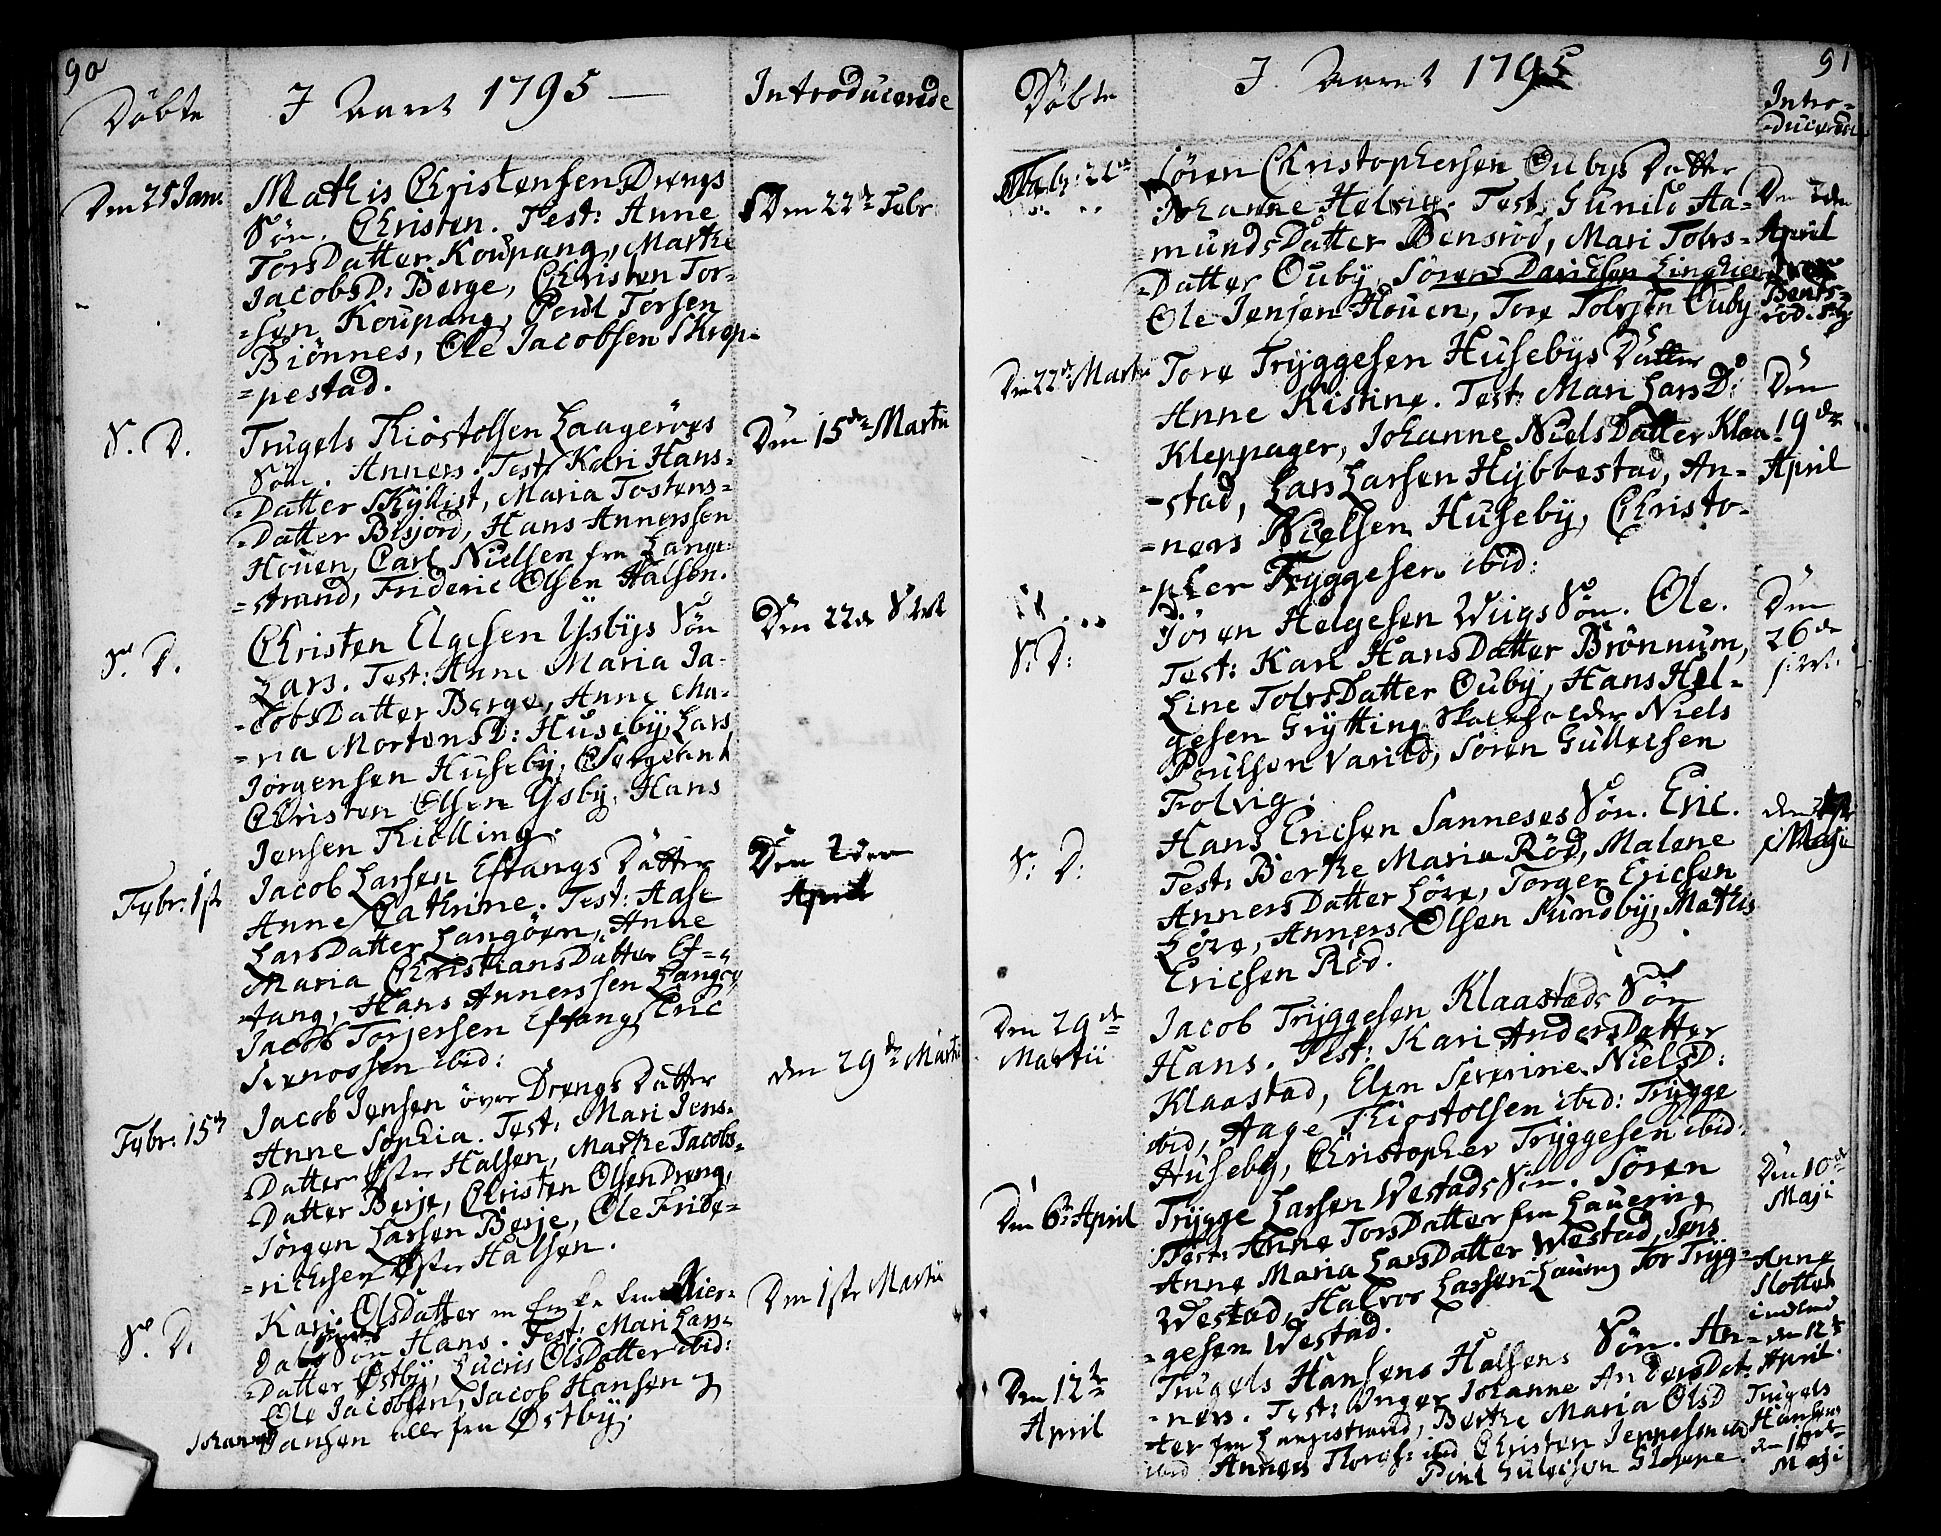 90
Döbte
I Aaret 1795 —
Introducerede
Den 25 Jan:
Mathis Christensen Drengs
Søn. Christen. Test: Anne
TorsDatter Koupang, Marthe
JacobsD: Berge, Christen Tor-
=sen Koupang, Poul Torsen
Biönnes, Ole Jacobsen Skrep-
=pestad.
Den 22de Febr:
S. D.
Trugels Kiöstolsen Laageröes
Søn. Anners. Test: Kari Hans-
=Datter Skÿlist, Maria Tostens-
=Datter Bisjord, Hans Annerssen
Houen, Carl Nielsen fra Lange-
=strand, Frideric Olsen Halsen.
Den 15de Martii
S. D.
Christen Elgesen Ÿsbÿes Søn
Lars. Test: Anne Maria Ja-
=cobsDatter Berge, Anne Ma-
=ria MortensD: Husebÿ, Lars
Jørgensen Husebÿ, Sergeant
Christen Olsen Ÿsbÿ, Hans
Jensen Kiölling.
Den 22de
Febr: 1ste
Jacob Larsen Eftangs Datter
Anne Cathrine. Test: Aase
LarsDatter Langöen, Anne
Maria ChristiansDatter Ef=
tang, Hans Annerssen Langöe
Jacob Torjersen Eftang, Eric
ibid:
Den 2den
April
Febr: 15de
Jacob Jensen över Drengs Datter
Anne Sophia. Test: Mari Jens-
=Datter Øster Halsen, Marthe Jacobs-
=Datter Berje, Christen Olsen Dreng,
Jörgen Larsen Berje, Ole Fride-
=richsen Øster Halsen.
den 29de Martii
S. D.
Kari OlsDatter en Enke fra
Søn Hans. Test: Mari Lars-
=Datter Østbÿ, Lucris OlsDatter ibid:
Ole Jacobsen, Jacob Hansen og
Johannes Jansen alle fra Østbÿ.
Den 1ste Martii
91
Döbte
I Aaret 1795
Intro-
=ducerede
Sören Christophersen Oubÿs Datter
Johanne Helvig. Test: Gunild Aa-
=mundsDatter Bensröd, Mari Tolvs-
=Datter Oubÿ, Sören Davidsen
Ole Jensen Houen, Tore Tolvsen Oubÿ
Den 2den
April
Den 22de Martii
Tore Trÿggesen Husebÿs Datter
Anne Kistine. Test: Mari LarsD:
Kleppager, Johanne NielsDatter Klaa-
=stad, Lars Larsen Hÿbbestad, An-
=ners Nielsen Husebÿ, Christo-
=pher Trÿggesen ibid:
Den
19de
April
S. D:
Jören Helgesen Wiigs Søn. Ole.
Test: Kari HansDatter Brönnum,
Line TolvsDatter Oubÿ, Hans Hel-
gesen Grÿtting, Skoleholder Niels
Poulsen Varild, Sören Gullersen
Tolvig.
Den
26de
S: D:
Hans Ericsen Sanneses Søn. Eric.
Test: Berthe Maria Röd, Malene
AnnersDatter Löve, Torger Ericsen
Löve, Anners Olsen Sundbÿ, Mathis
Ericsen Röd.
Maji
Den 29de
Martii
Jacob Trÿggesen Klaastads Søn
Hans. Test: Kari AndersDatter
Klaastad, Elen Severine NielsD:
ibid, Aage Kiöstolsen ibid: Trÿgge
Husebÿ, Christopher Trÿggesen ibid:
Den 6te April
Trÿgge Larsen Westads Søn. Sören
Test: Anne TorsDatter fra Lauering
Anne Maria LarsDatter Westad, Jens
Westad, Halvor Larsen Lauering Tor Trÿg-
=gesen Westad.
Den 10de
Maji
Den 12te
April
Trugels Hansens Halsens Søn. An-
=ners. Test: Inger Johanne AndersDat-
=ter fra Langestrand, Berthe Maria OlsD
ibid Anners ibid Christen Jeppesen ibid
Poul
Anne
den 12te
April.
Trugels
Hansens
den 10de
Maji